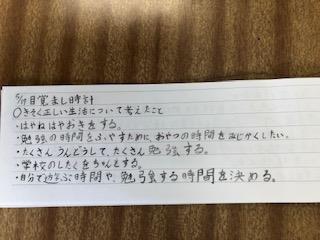 5/17 目覚まし時計
○きそく正しい生活について考えたこと
・はやねはやおきをする。
・勉強の時間をふやすために、おやつの時間をみじかくしたい。
・たくさんうんどうして、たくさん勉強する。
・学校のしたくをちゃんとする。
・自分で遊ぶ時間や、勉強する時間を決める。